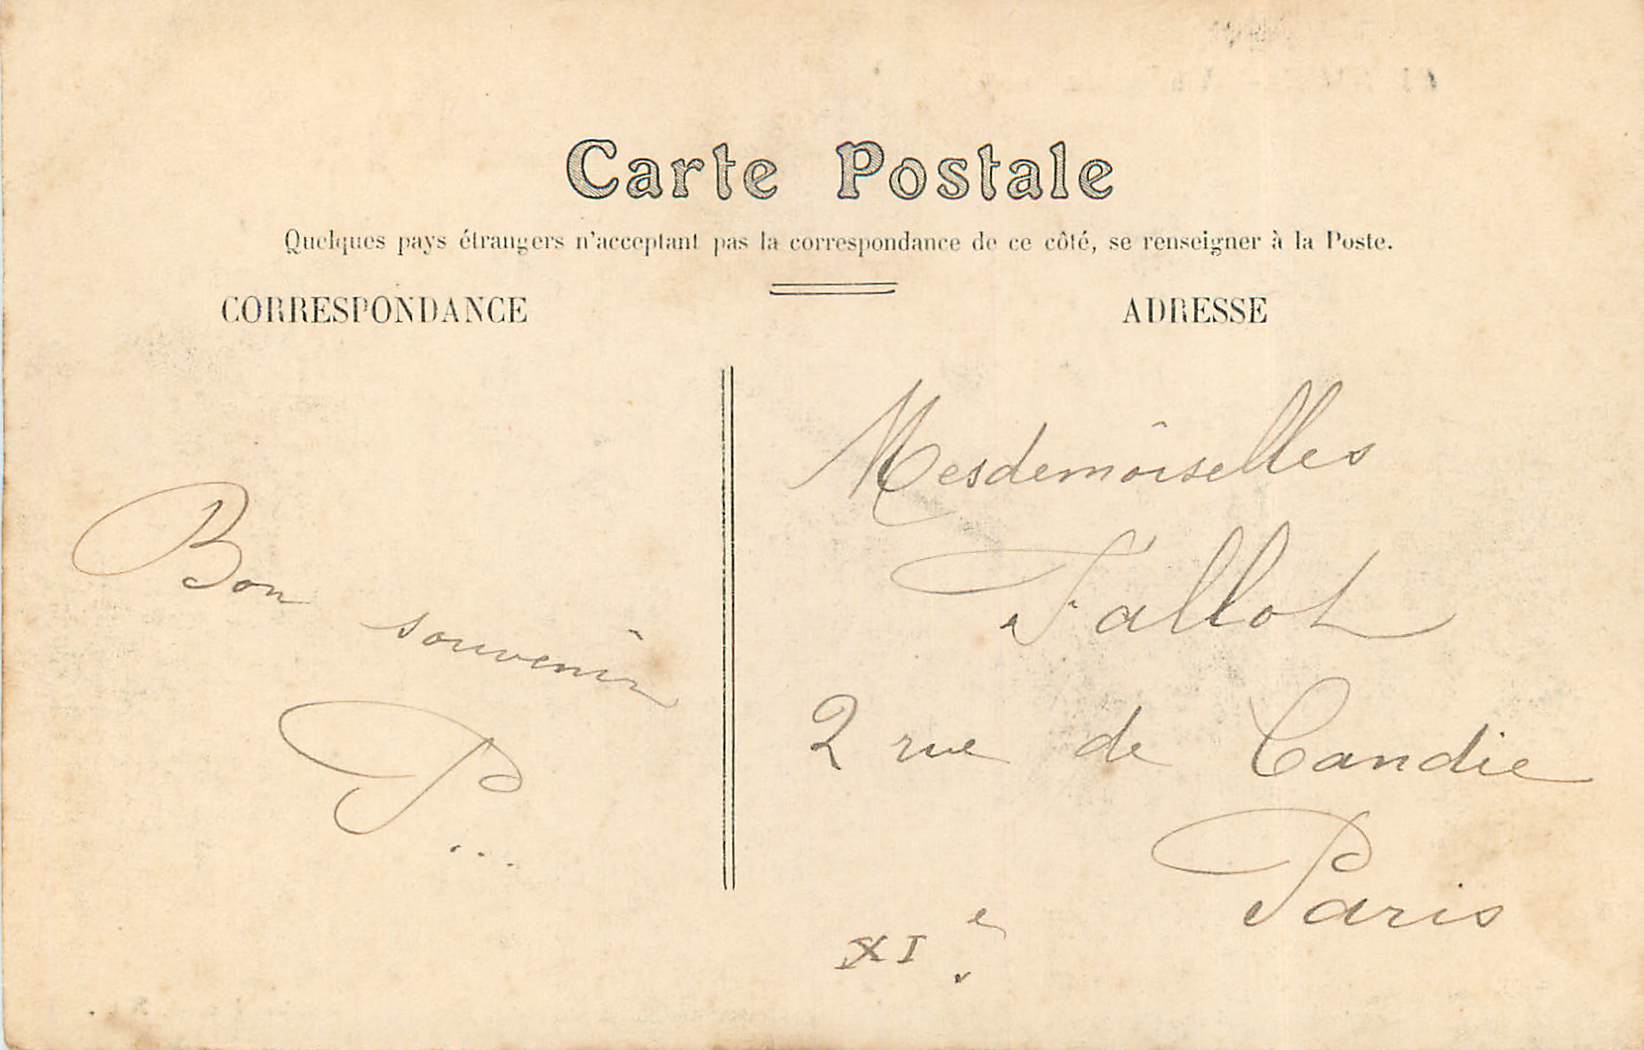 Carte Postale
Quelques pays étrangers n'acceptant pas la correspondance de ce côté, se renseigner à la Poste.
CORRESPONDANCE
ADRESSE
Bon souvenir
P...
Mesdemoiselles
Fallot
2 rue de Candie
Paris
XIe